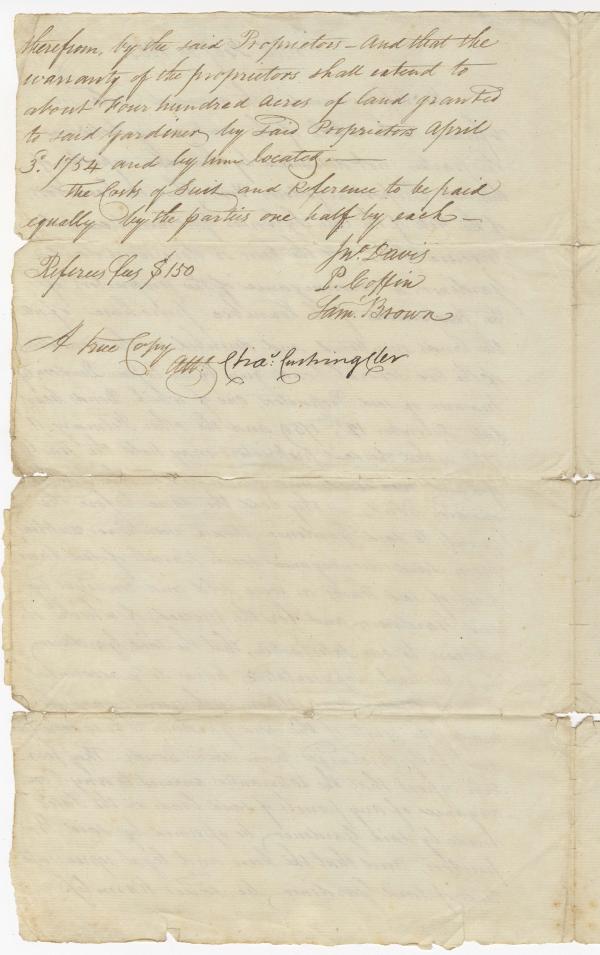 therefrom, by the said Proprietors – And that the
warranty of the proprietors shall extend to
about Four hundred Acres of land granted
to said Gardiner by said Proprietors April
3d. 1754 and by him located. —
The Costs of Suit and Reference to be paid
equally by the parties one half by each –
Jno. Davis
Referees fees $150
P. Coffin
Saml. Brown
A true Copy
Attt. Chas. Cushing Cler